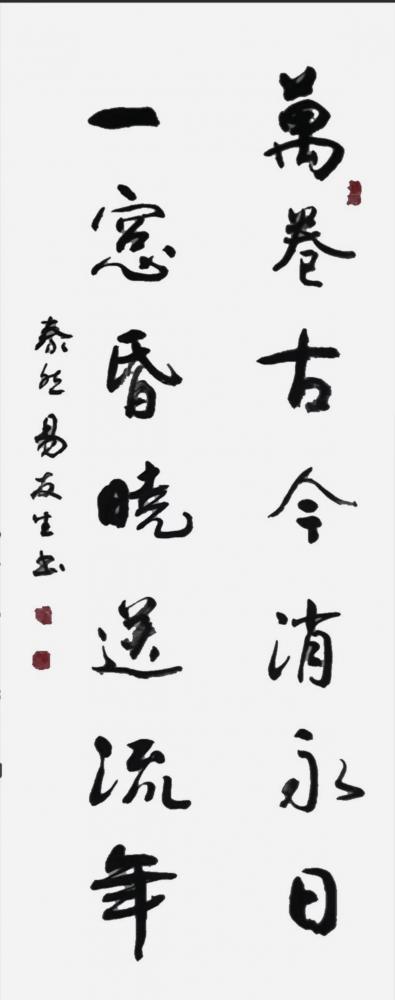 萬卷古今消永日
一窓昏曉送流年
泰然易友生书